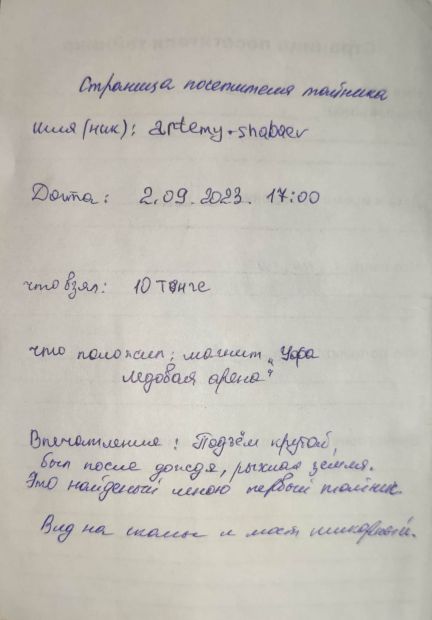 Страница посетителя тайника
имя (ник): artemy.shabaev
Дата: 2.09.2023. 17:00
что взял: 10 тенге
что положил: магнит „Уфа
ледовая арена"
Впечатления: Подъём крутой,
был после дождя, рыхлая земля.
Это найденый мною первый тайник.
Вид на скалы и мост шикарный.